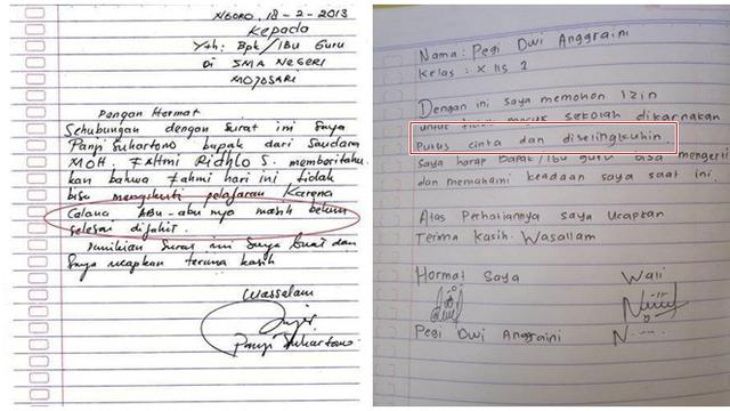 NGORO, 18 - 2 - 2013
Kepada
Yth: Bpk/Ibu Guru
Di SMA NEGERI
MOJOSARI
Dengan Hormat
Sehubungan dengan surat ini Saya
Panji Suhartono bapak dari Saudara
MOH. FAHmi Ridhlo S. memberitahu
kan bahwa Fahmi hari ini tidak
bisa mengikuti pelajaran Karena
Celana Abu-abu nya masih belum
selesai dijahit.
Demikian Surat ini Saya buat dan
Saya ucapkan terima kasih
Wassalam
Panji Suhartono
Nama: Pegi Dwi Anggraini
Kelas : X IIS 2
Dengan ini saya memohon izin
untuk tidak masuk sekolah dikarnakan
Putus cinta dan diselingkuhin.
Saya harap Bapak/Ibu guru bisa mengerti
dan memahami keadaan saya saat ini.
Atas Perhatiannya saya ucapkan
Terima Kasih. Wasallam
Hormat Saya Wali
Pegi Dwi Anggraini